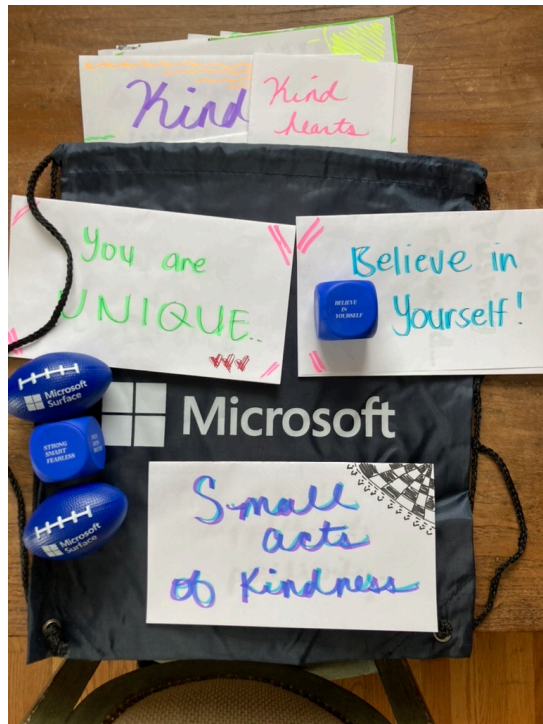 Kind
Kind
hearts
You are
UNIQUE..
Believe in
Yourself!
BELIEVE
IN
YOURSELF
Microsoft
Surface
Microsoft
STRONG
SMART
FEARLESS
Microsoft
Surface
Small
acts
of Kindness